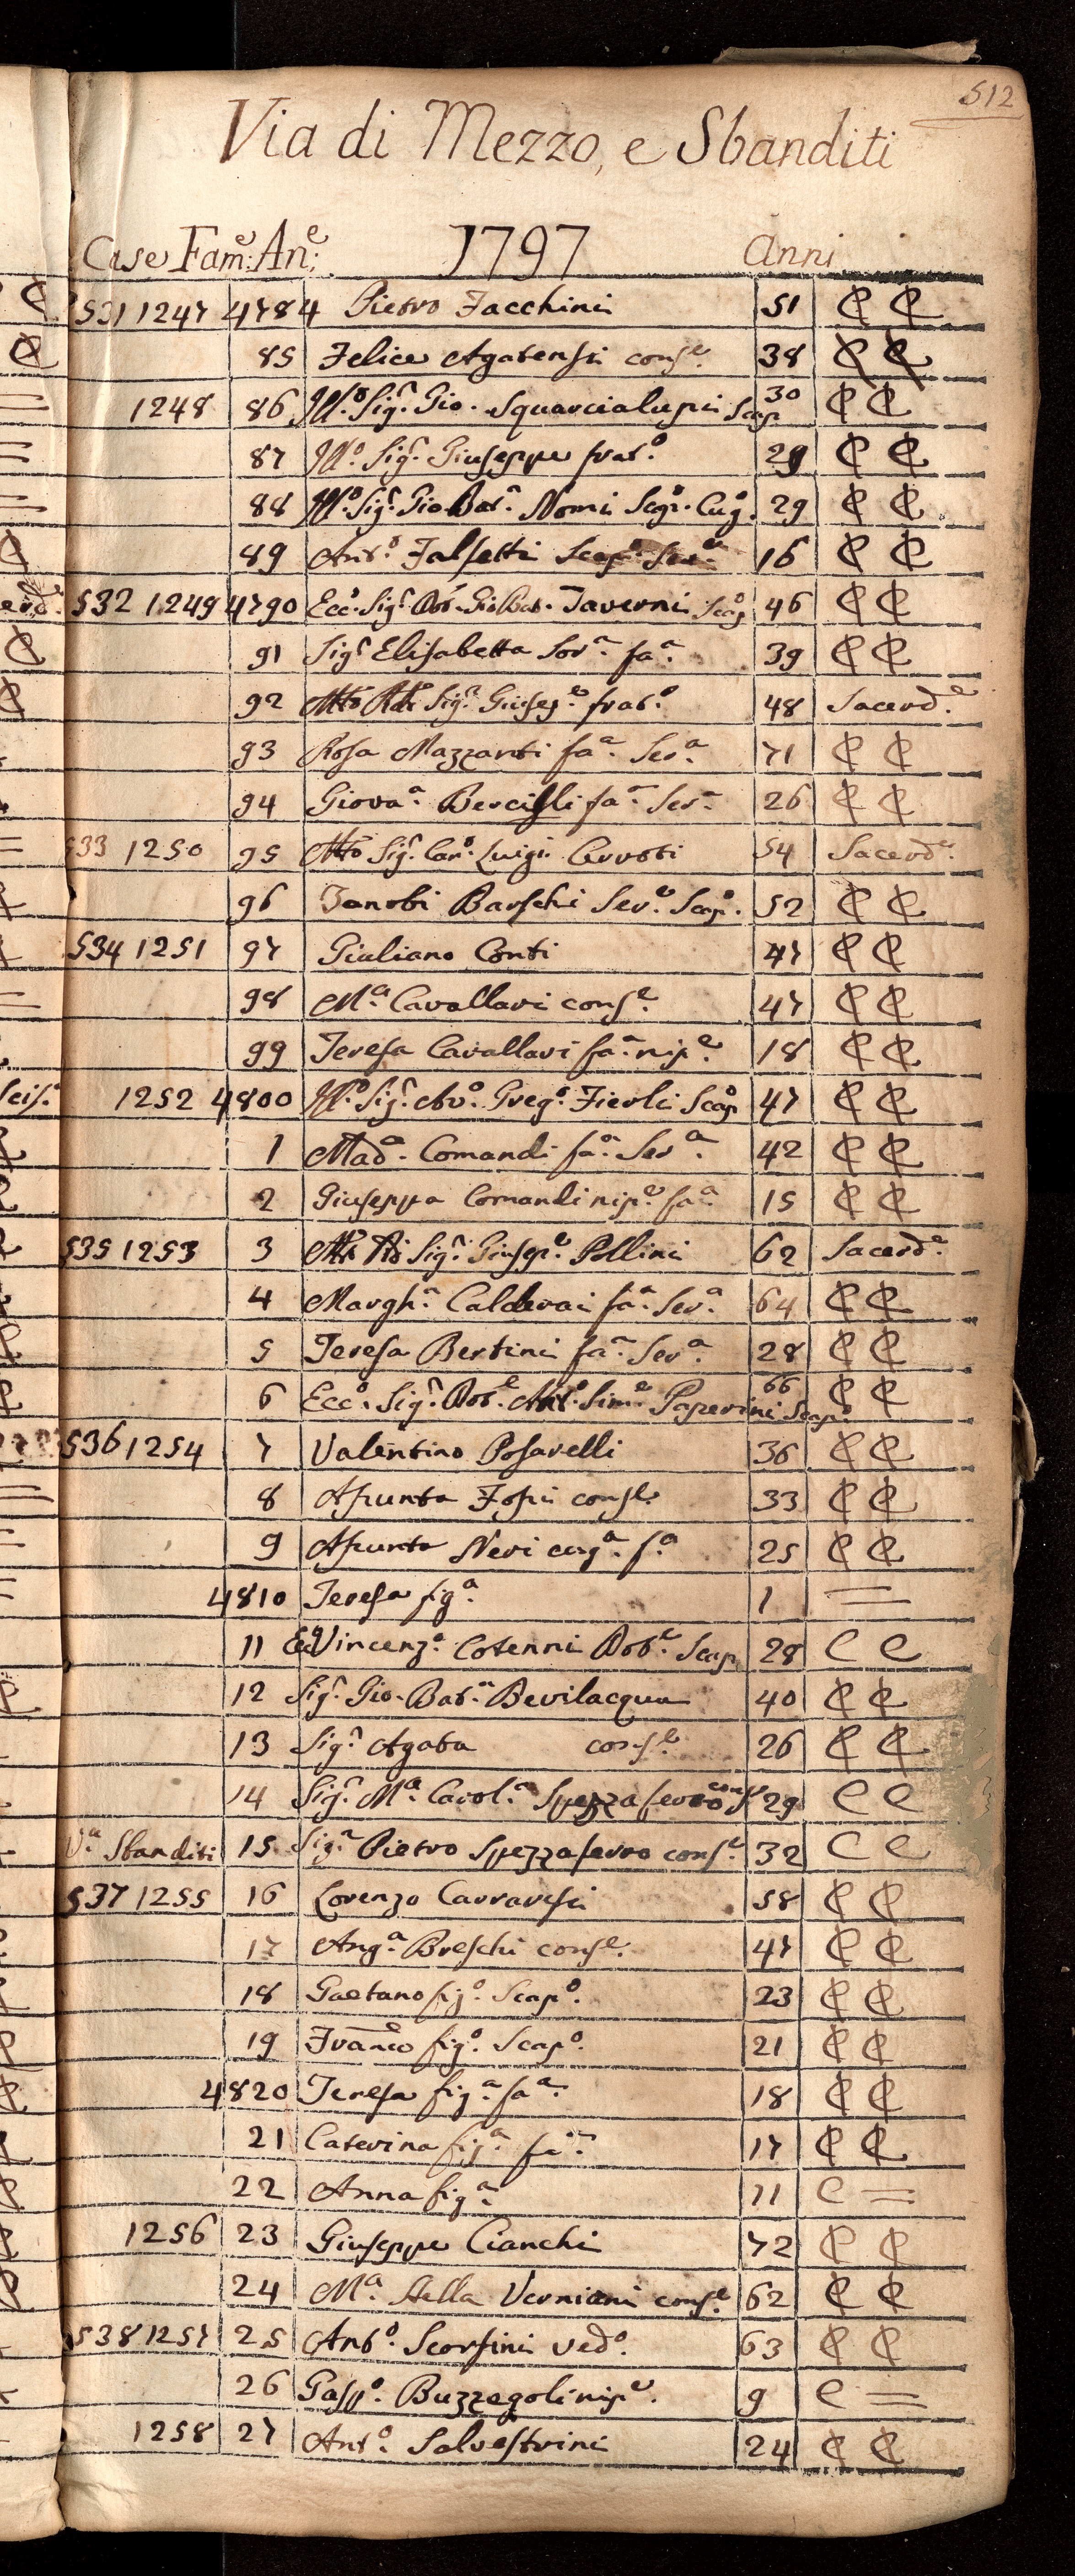 512
Via di Mezzo, e Sbanditi
Case Fam:e An:e 1797 Anni
531 1247 4784 Pietro Facchini 51 C C
85 Felice Agatensi cons.e 38 C C
1248 86 Ill.o Sig.r Gio. Squarcialupi Scap. 30 C C
87 Ill.o Sig.r Giuseppe frat.o 29 C C
88 Ill.o Sig.r Gio Bat.a Nomi Scap.o Cug.o 29 C C
89 Ant.o Falsetti Scap.o Ser.e 16 C C
532 1249 4790 Ecc.o Sig.r Dot. Gio Bat. Taverni Scap.o 46 C C
91 Sig.ra Elisabetta Sor.a fa.a 39 C C
92 Mto Rdo Sig.r Giusep.e frat.o 48 Sacerd.e
93 Rosa Mazzanti fa.a Ser.a 71 C C
94 Giova.a Bercigli fa.a Ser.a 26 C C
533 1250 95 Mto Sig.r Can.o Luigi Cerroti 54 Sacerd.e
96 Zanobi Barschi Ser.e Scap.o 52 C C
534 1251 97 Giuliano Conti 47 C C
98 M.a Cavallari cons.e 47 C C
99 Teresa Cavallari fa.a nip.e 18 C C
1252 4800 Ill.o Sig.r Av.o Greg.o Fierli Scap.o 47 C C
1 Mad.a Comandi fa.a Ser.a 42 C C
2 Giuseppa Comandi nip.e fa.a 15 C C
535 1253 3 Sig.r Giusep.e Pollini 62 Sacerd.e
4 Margh.a Calderai fa.a Ser.a 64 C C
5 Teresa Bertini fa.a Ser.a 28 C C
6 Ecc.o Sig.r Dot.e Ant.o Sim.e Paperini Scap.o 66 C C
536 1254 7 Valentino Posarelli 36 C C
8 Asunta Fossi cons.e 33 C C
9 Asunta Neri cug.a f.a 25 C C
4810 Teresa fig.a 1 =
11 Ecc.o Vincenz.o Cotenni Dot.e Scap. 28 C C
12 Sig.r Gio. Bat.a Bevilacqua 40 C C
13 Sig.ra Agata cons.e 26 C C
14 Sig.ra M.a Carol.a Spezzaferro cons.e 29 C C
V.a Sbanditi 15 Sig.r Pietro Spezzaferro cons.e 32 C C
537 1255 16 Lorenzo Carraresi 58 C C
17 Ang.a Breschi cons.e 47 C C
18 Gaetano fig.o Scap.o 23 C C
19 Franc.o fig.o Scap.o 21 C C
4820 Teresa fig.a fa.a 18 C C
21 Caterina fig.a fa.a 17 C C
22 Anna fig.a 11 C =
1256 23 Giuseppe Cianchi 72 C C
24 M.a Stella Verniani cons.e 62 C C
538 1257 25 Ant.o Scorsini ved.o 63 C C
26 Gasp.o Buzzegoli nip.e 9 C =
1258 27 Ant.o Salvestrini 24 C C